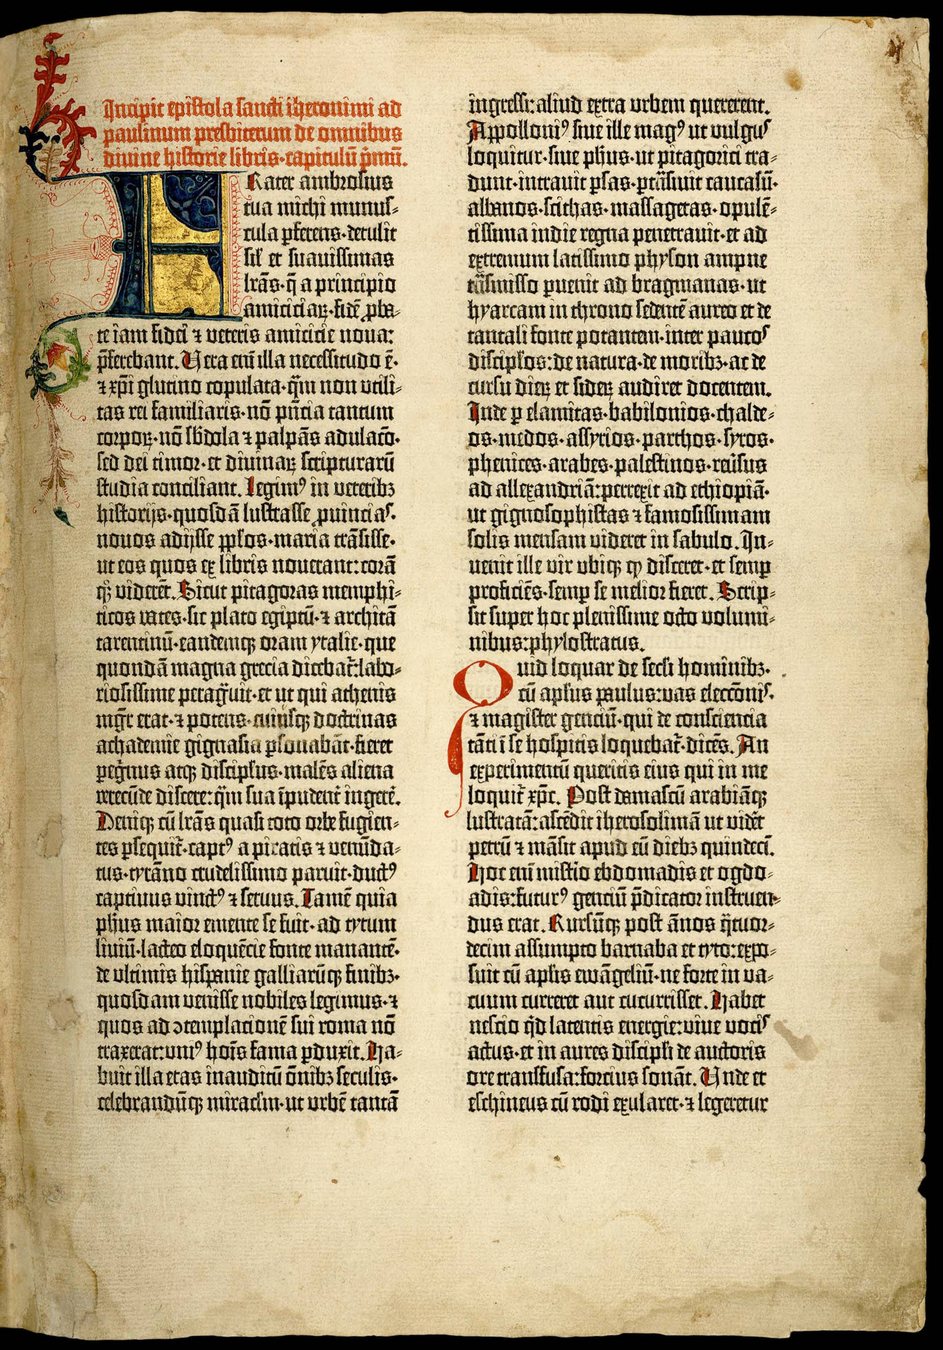 Incipit epistola sancti iheronimi ad
paulinum presbiterum de omnibus
divine historie libris·capitulū p̄mū.
Frater ambrosius
tua michi munus-
cula ꝑferens·detulit
sil' et suavissimas
lr̄as·q̄ a principio
amiciciaꝝ·fidē ꝓba-
te iam fidei ⁊ veteris amicicie nova:
p̄ferebant. Vera em̄ illa necessitudo ē·
⁊ xp̄i glutino copulata·q̄m non utili-
tas rei familiaris·nō pn̄cia tantum
corpoꝝ·nō sb̄dola ⁊ palpās adulac̄o·
sed dei timor·et divinaꝝ scripturarū
studia conciliant. Legimꝰ in veteribꝫ
historijs·quosdā lustrasse ꝓvinciaˢ.
novos adijsse pp̄los·maria trāsisse·
ut eos quos ex libris noverant: corā
qꝫ viderēt. Sicut pitagoras memphi-
ticos vates·sic plato egiptū·⁊ architā
tarentinū·eandemqꝫ oram ytalie·que
quondā magna grecia dicebat̄: labo-
riosissime peragᵃvit·et ut qui athenis
mgr̄ erat·⁊ potens·cuiusqꝫ doctrinas
achademie gignasia ꝑsonabāt·fieret
peg̓nus atqꝫ discipl̄us·malēs aliena
verecūde discere: q̄m sua īpudent̄ ingerē.
Deniqꝫ cū lr̄as quasi toto orbe fugien-
tes ꝑsequit̄·captꝰ a piratis ⁊ venūda-
tus·tyrāno crudelissimo paruit·ductꝰ
captivus vinctꝰ ⁊ servus. Tamē quia
ph̄us maior emente se fuit·ad tytum
liviū·lacteo eloquēcie fonte manantē·
de ultimis hispanie galliarūqꝫ finibꝫ·
quosdam venisse nobiles legimus·⁊
quos ad ↄtemplacionē sui roma nō
traxerat: uniꝰ hoīs fama ꝑduxit. Ha-
buit illa etas inauditū ōnibꝫ seculis·
celebrandūqꝫ miracl̄m·ut urbē tantā
ingressi: aliud extra urbem quererent.
Appolloniꝰ sive ille magꝰ ut vulgus
loquitur·sive ph̄us·ut pitagorici tra-
dunt·intravit ꝑsas·ptrāsivit caucasū·
albanos·scithas·massagetas·opulē-
tissima indie regna penetravit·et ad
extremum latissimo physon ampne
trāsmisso ꝑvenit ad bragmanas·ut
hyarcam in throno sedentē aureo et de
tantali fonte potantem·inter paucoˢ
discipl̄os: de natura·de moribꝫ·ac de
cursu dieꝝ et sideꝝ audiret docentem.
Inde ꝑ elamitas·babilonios·chalde-
os·medos·assyrios·parthos·syros·
phenices·arabes·palestinos·reūsus
ad allexandriā: perrexit ad ethiopiā·
ut gignosophistas ⁊ famosissimam
solis mensam videret in sabulo. In-
venit ille vir ubiqꝫ qꝫ disceret·et semꝑ
proficiēs·semꝑ se melior fieret. Scrip-
sit super hoc plenissime octo volumi-
nibus: phylostratus.
Quid loquar de seclī hominibꝫ·
cū apl̄us paulus: vas electōniˢ.
⁊ magister genciū·qui de consciencia
tāti ī se hospitis loquebat̄·dicēs. An
experimentū queritis eius qui in me
loquit̄ xp̄c. Post damascū arabiāqꝫ
lustratā: ascēdit iherosolimā ut vidēt
petrū ⁊ māsit apud eū diebꝫ quindecī.
Hoc em̄ mist̄io ebdomadis et ogdo-
adis: futurꝰ genciū p̄dicator instruen-
dus erat. Rursūqꝫ post ānos q̄tuor-
decim assumpto barnaba et tyto: expo-
suit cū apl̄is ewāgeliū·ne forte in va-
cuum curreret aut cucurrisset. Habet
nescio qd̄ latentis energie: vive vociˢ
actus·et in aures discipl̄i de auctoris
ore transfusa: forcius sonāt. Unde et
eschineus cū rodi exularet·⁊ legeretur